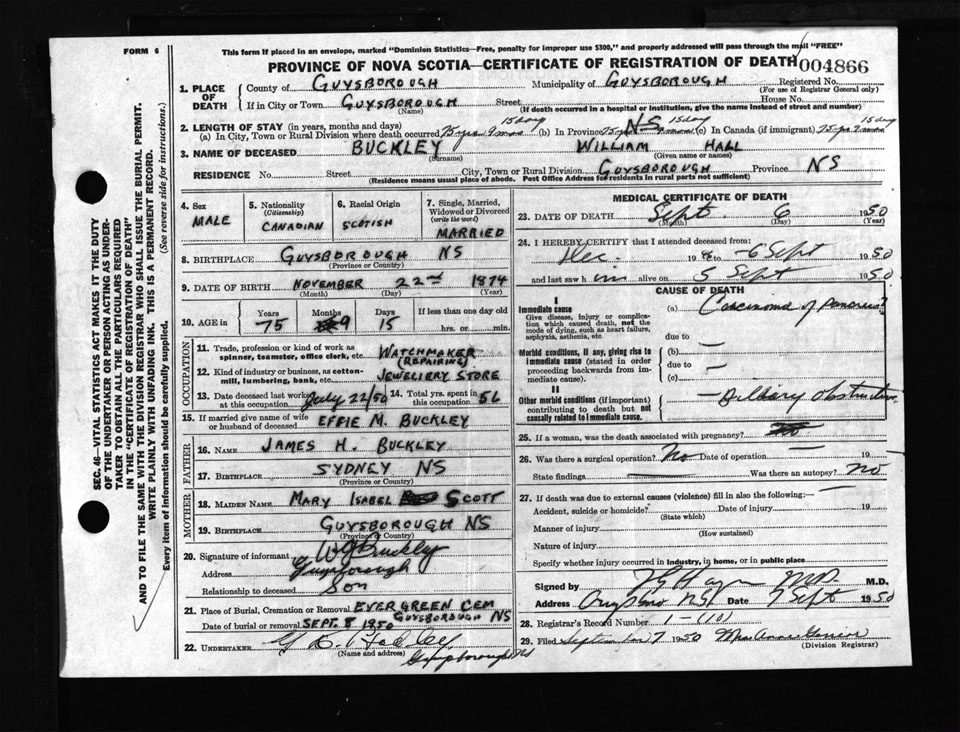 FORM 6
This form if placed in an envelope, marked "Dominion Statistics—Free, penalty for improper use $300," and properly addressed will pass through the mail "FREE"
PROVINCE OF NOVA SCOTIA—CERTIFICATE OF REGISTRATION OF DEATH 004866
1. PLACE OF DEATH
County of GUYSBOROUGH Municipality of GUYSBOROUGH Registered No.
(For use of Registrar General only)
If in City or Town GUYSBOROUGH Street House No.
(Name) (If death occurred in a hospital or institution, give the name instead of street and number)
2. LENGTH OF STAY (in years, months and days) 15 days NS 15 days 15 days
(a) In City, Town or Rural Division where death occurred 75 yrs 9 mos (b) In Province 75 yrs 9 mos (c) In Canada (if immigrant) 75 yrs 9 mos
3. NAME OF DECEASED BUCKLEY WILLIAM HALL
(Surname) (Given name or names)
RESIDENCE No. Street City, Town or Rural Division GUYSBOROUGH Province NS
(Residence means usual place of abode. Post Office Address for residents in rural parts not sufficient)
4. Sex
MALE
5. Nationality
(Citizenship)
CANADIAN
6. Racial Origin
SCOTISH
7. Single, Married,
Widowed or Divorced
(write the word)
MARRIED
8. BIRTHPLACE GUYSBOROUGH NS
(Province or Country)
9. DATE OF BIRTH NOVEMBER 22nd 1874
(Month) (Day) (Year)
10. AGE in Years Months Days If less than one day old
75 9 15 hrs. or min.
OCCUPATION
11. Trade, profession or kind of work as
spinner, teamster, office clerk, etc. WATCHMAKER
(REPAIRING)
12. Kind of industry or business, as cotton-
mill, lumbering, bank, etc. JEWELLERY STORE
13. Date deceased last worked
at this occupation July 22/50
14. Total yrs. spent in
this occupation 56
15. If married give name of wife
or husband of deceased EFFIE M. BUCKLEY
FATHER
16. NAME JAMES H. BUCKLEY
17. BIRTHPLACE SYDNEY NS
(Province or Country)
MOTHER
18. MAIDEN NAME MARY ISABEL SCOTT
19. BIRTHPLACE GUYSBOROUGH NS
(Province or Country)
20. Signature of informant Buckley
Address Guysborough
Relationship to deceased Son
21. Place of Burial, Cremation or Removal EVERGREEN CEM
GUYSBOROUGH NS
Date of burial or removal SEPT. 8 1950
22. UNDERTAKER
(Name and address) Guysborough NS
MEDICAL CERTIFICATE OF DEATH
23. DATE OF DEATH Sept. 6 1950
(Month) (Day)
24. I HEREBY CERTIFY that I attended deceased from:
Dec. 1946 to 6 Sept 1950
and last saw him alive on 5 Sept 1950
CAUSE OF DEATH
I
Immediate cause
Give disease, injury or complica-
tion which caused death, not the
mode of dying, such as heart failure,
asphyxia, asthenia, etc
(a) Carcinoma of Pancreas
due to
Morbid conditions, if any, giving rise to
immediate cause (stated in order
proceeding backwards from im-
mediate cause).
(b)
due to
(c)
II
Other morbid conditions (if important)
contributing to death but not
causally related to immediate cause.
Biliary obstruction
25. If a woman, was the death associated with pregnancy?
26. Was there a surgical operation? No Date of operation 19
State findings Was there an autopsy? No
27. If death was due to external causes (violence) fill in also the following:—
Accident, suicide or homicide? Date of injury 19
(State which)
Manner of injury
(How sustained)
Nature of injury
Specify whether injury occurred in Industry, in home, or in public place
Signed by M.D. M.D.
Address Guysboro N.S. Date 7 Sept 1950
28. Registrar's Record Number
29. Filed September 7 1950
(Division Registrar)
SEC. 46—VITAL STATISTICS ACT MAKES IT THE DUTY
OF THE UNDERTAKER OR PERSON ACTING AS UNDER-
TAKER TO OBTAIN ALL THE PARTICULARS REQUIRED
IN THE "CERTIFICATE OF REGISTRATION OF DEATH"
AND TO FILE THE SAME WITH THE DIVISION REGISTRAR WHO SHALL ISSUE THE BURIAL PERMIT.
WRITE PLAINLY WITH UNFADING INK. THIS IS A PERMANENT RECORD.
Every item of information should be carefully supplied. (See reverse side for instructions.)